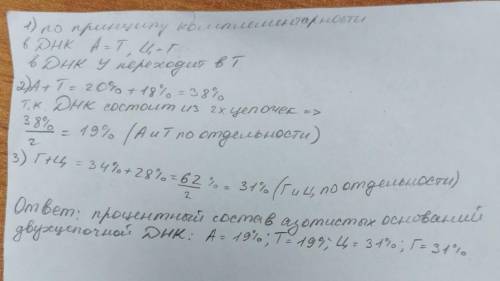 1) по принципу комплементарности
в ДНК А=Т, Ц=Г
в ДНК У переходит в Т
2) А+Т = 20% + 18% = 38%
т.к. ДНК состоит из 2х цепочек =>
38%/2 = 19% (А и Т по отдельности)
3) Г+Ц = 34% + 28% = 62/2 % = 31% (Г и Ц по отдельности)
Ответ: процентный состав азотистых оснований
двухцепочной ДНК: А = 19%; Т = 19%; Ц = 31%; Г = 31%